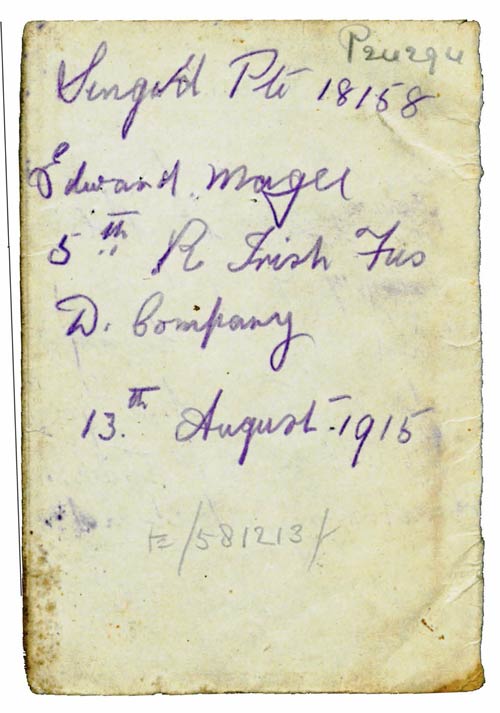 Singe'd Pte 18158
Edward Magee
5th R Irish Fus
D. Company
13th August 1915
E/581213/